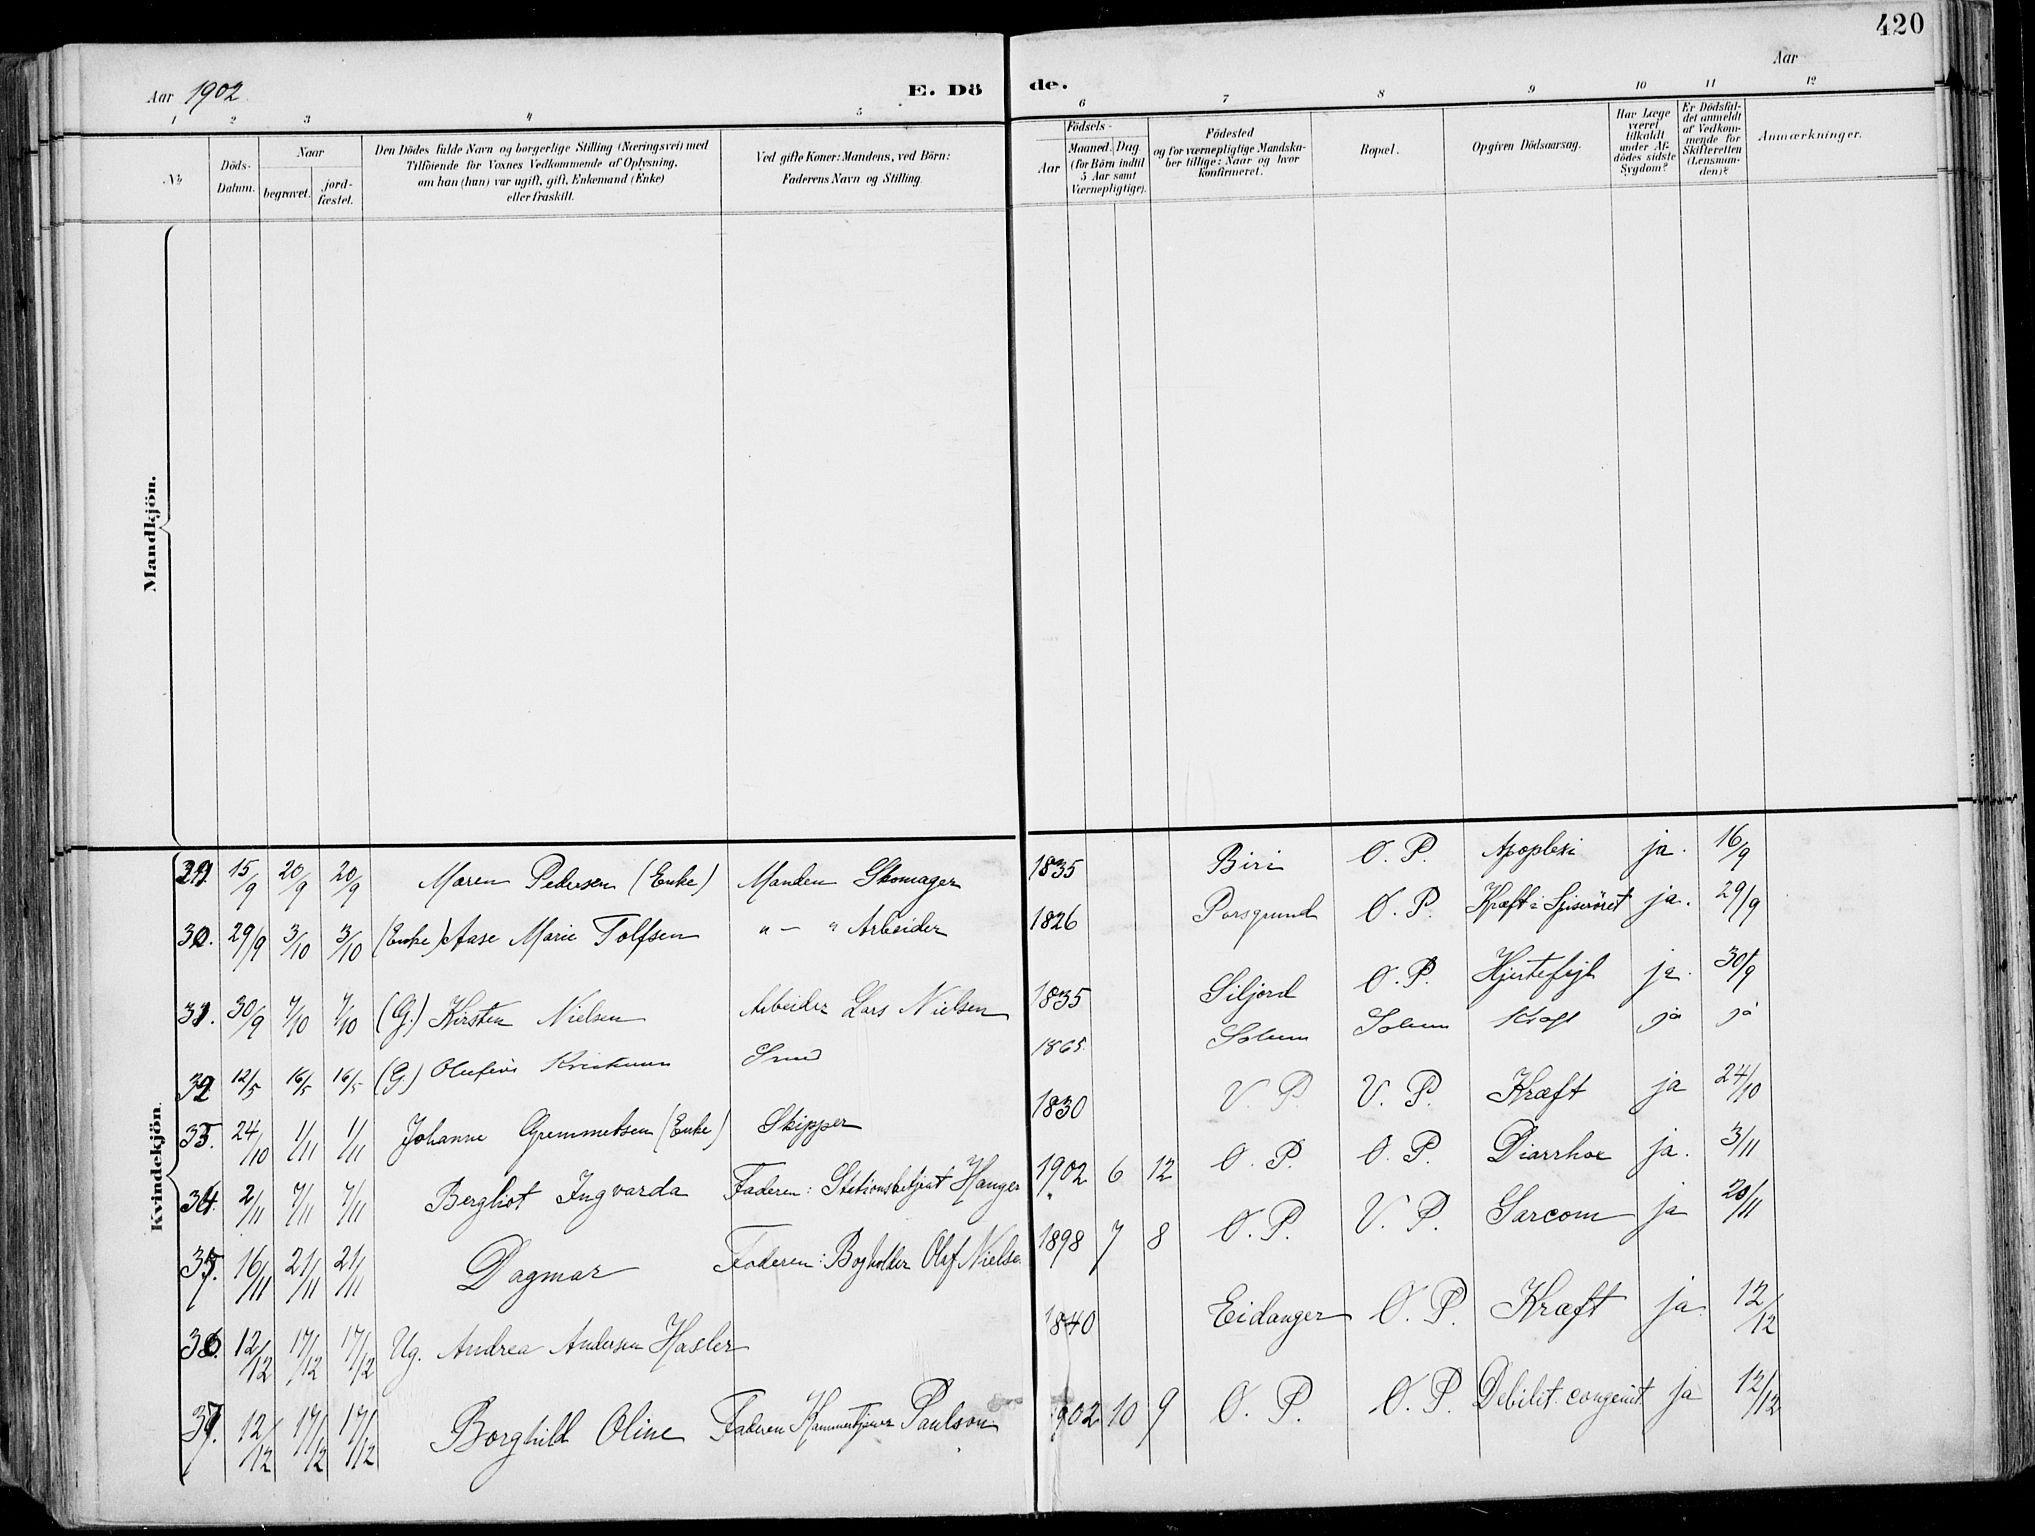 420
Aar 1902
E. Dö de.
Aar
1 2 3 4 5 6 7 8 9 10 11 12
№
Döds-Datum.
Naar
begravet.
jord-fæstet.
Den Dödes fulde Navn og borgerlige Stilling (Næringsvei) med
Tilföiende for Voxnes Vedkommende af Oplysning,
om han (hun) var ugift, gift, Enkemand (Enke)
eller fraskilt.
Ved gifte Koner: Mandens, ved Börn:
Faderens Navn og Stilling.
Födsels-
Aar
Maaned. Dag
(for Börn indtil
5 Aar samt
Værnepligtige).
Födested
og for værnepligtige Mandska-
ber tillige: Naar og hvor
konfirmeret.
Bopæl.
Opgiven Dödsaarsag.
Har Læge
været
tilkaldt
under Af-
dödes sidste
Sygdom?
Er Dödsfal-
det anmeldt
af Vedkom-
mende for
Skifteretten
(Lensman-
den)?
Anmærkninger.
Mandkjön.
Kvindekjön.
29. 15/9 20/9 20/9 Maren Pedersen (Enke) Manden Skomager 1835 Biri O. P. Apoplexi ja. 16/9
30. 29/9 3/10 3/10 (Enke) Aase Marie Tolfsen " — " Arbeider 1826 Porsgrund O. P. Kræft i Spiseröret ja. 29/9
31. 30/9 7/10 7/10 (G.) Kirsten Nielsen Arbeider Lars Nielsen 1835 Siljord O. P. Hjertefejl ja. 30/9
32 12/5 16/5 16/5 (G.) Smed 1865 Solum Solum Kræft ja ja
33. 24/10 1/11 1/11 Johanne Gremmetsen (Enke) Skipper 1830 V. P. V. P. Kræft ja 24/10
34. 2/11 7/11 7/11 Bergliot Ingvarda Faderen: Stationsbetjent Hanger 1902 6 12 O. P. O. P. Diarrhoe ja. 3/11
35. 16/11 21/11 21/11 Dagmar Faderen: Bogholder Olaf Nielsen 1898 7 8 O. P. V. P. Sarcom ja 20/11
36. 12/12 17/12 17/12 Ug. Andrea Andersen Hasler 1840 Eidanger O. P. Kræft ja 12/12
37. 12/12 17/12 17/12 Borghild Oline Faderen Paulson 1902 10 9 O. P. O. P. Debilit. congenit. ja 12/12